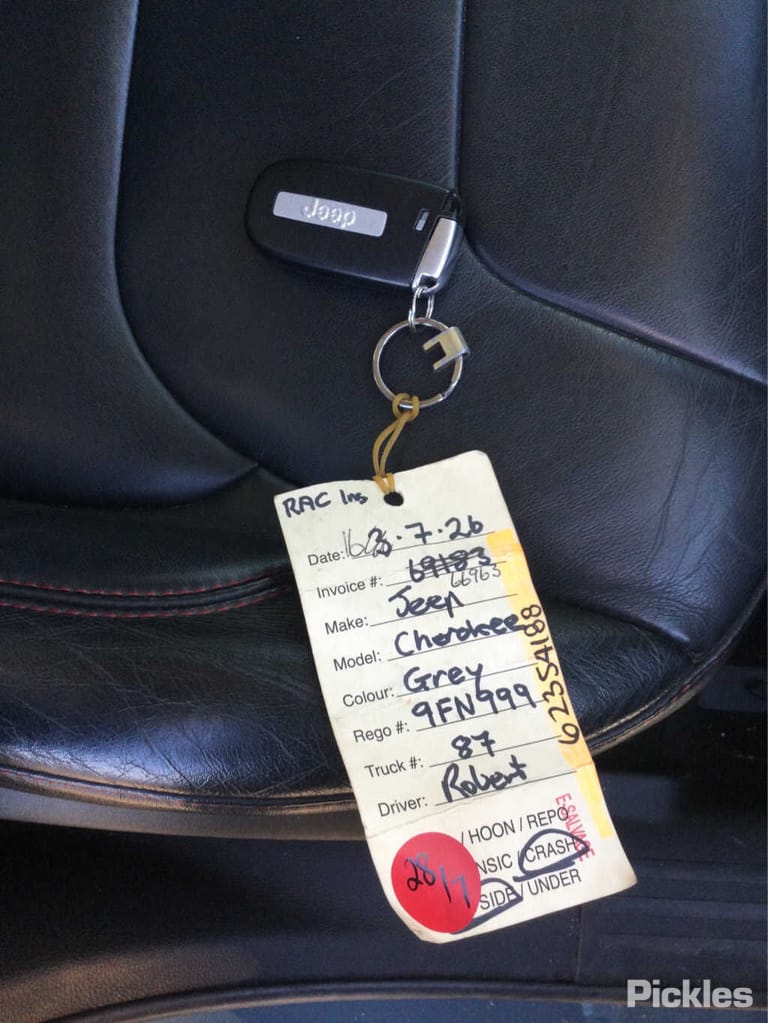 Jeep
RAC Ins
Date: 3.7.26
Invoice #: 69183
66963
Make: Jeep
Model: Cherokee
Colour: Grey
Rego #: 9FN999
Truck #: 87
Driver: Robert
/ HOON / REPO
NSIC / CRASH
SIDE / UNDER
28/7
623S4188
E-SALVAGE
Pickles